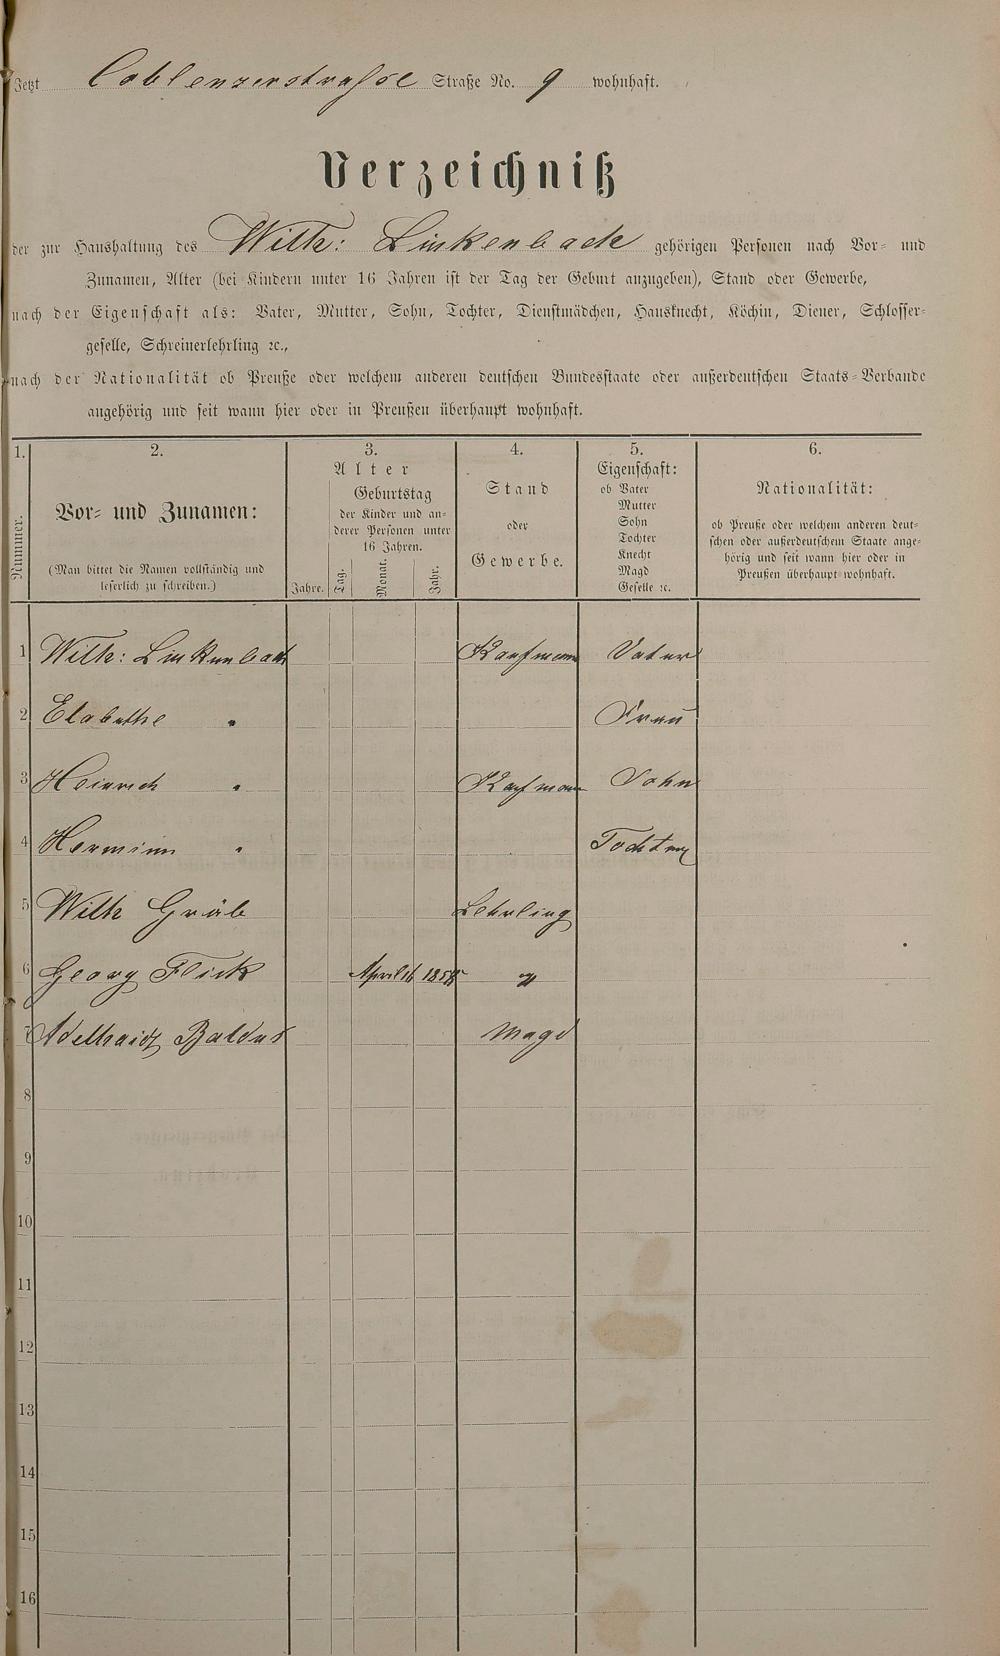 Jetzt Coblenzerstraße Straße No. 9 wohnhaft.
Verzeichniß
der zur Haushaltung des Wilh: Linkenbach gehörigen Personen nach Vor- und
Zunamen, Alter (bei Kindern unter 16 Jahren ist der Tag der Geburt anzugeben), Stand oder Gewerbe,
nach der Eigenschaft als: Vater, Mutter, Sohn, Tochter, Dienstmädchen, Hausknecht, Köchin, Diener, Schlosser-
geselle, Schreinerlehrling ꝛc.,
nach der Nationalität ob Preuße oder welchem anderen deutschen Bundesstaate oder außerdeutschen Staats-Verbande
angehörig und seit wann hier oder in Preußen überhaupt wohnhaft.
1. 2. 3. 4. 5. 6.
Nummer.
Vor- und Zunamen:
(Man bittet die Namen vollständig und
leserlich zu schreiben.)
Alter
Geburtstag
der Kinder und an-
derer Personen unter
16 Jahren.
Jahre. Tag. Monat. Jahr.
Stand
oder
Gewerbe.
Eigenschaft:
ob Vater
Mutter
Sohn
Tochter
Knecht
Magd
Geselle ꝛc.
Nationalität:
ob Preuße oder welchem anderen deut-
schen oder außerdeutschem Staate ange-
hörig und seit wann hier oder in
Preußen überhaupt wohnhaft.
1 Wilh: Linkenbach Kaufmann Vater
2 Elabethe " Frau
3 Heinrich " Kaufmann Sohn
4 Hermine " Tochter
5 Wilh Gräb Lehrling
6 Georg Flick April 16 "
7 Adelhaid Baldus Magd
8
9
10
11
12
13
14
15
16